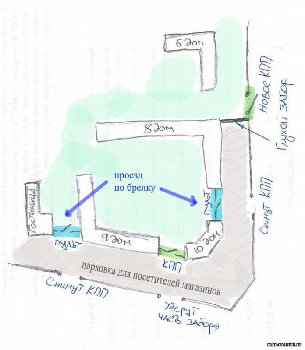 6 дом
Новое КПП
Глухой забор
8 дом
проезд
по брелку
Гостиница
пульт
пульт
Снимут КПП
9 дом
10 дом
КПП
парковка для посетителей магазинов
Снимут КПП
уберут
часть забора